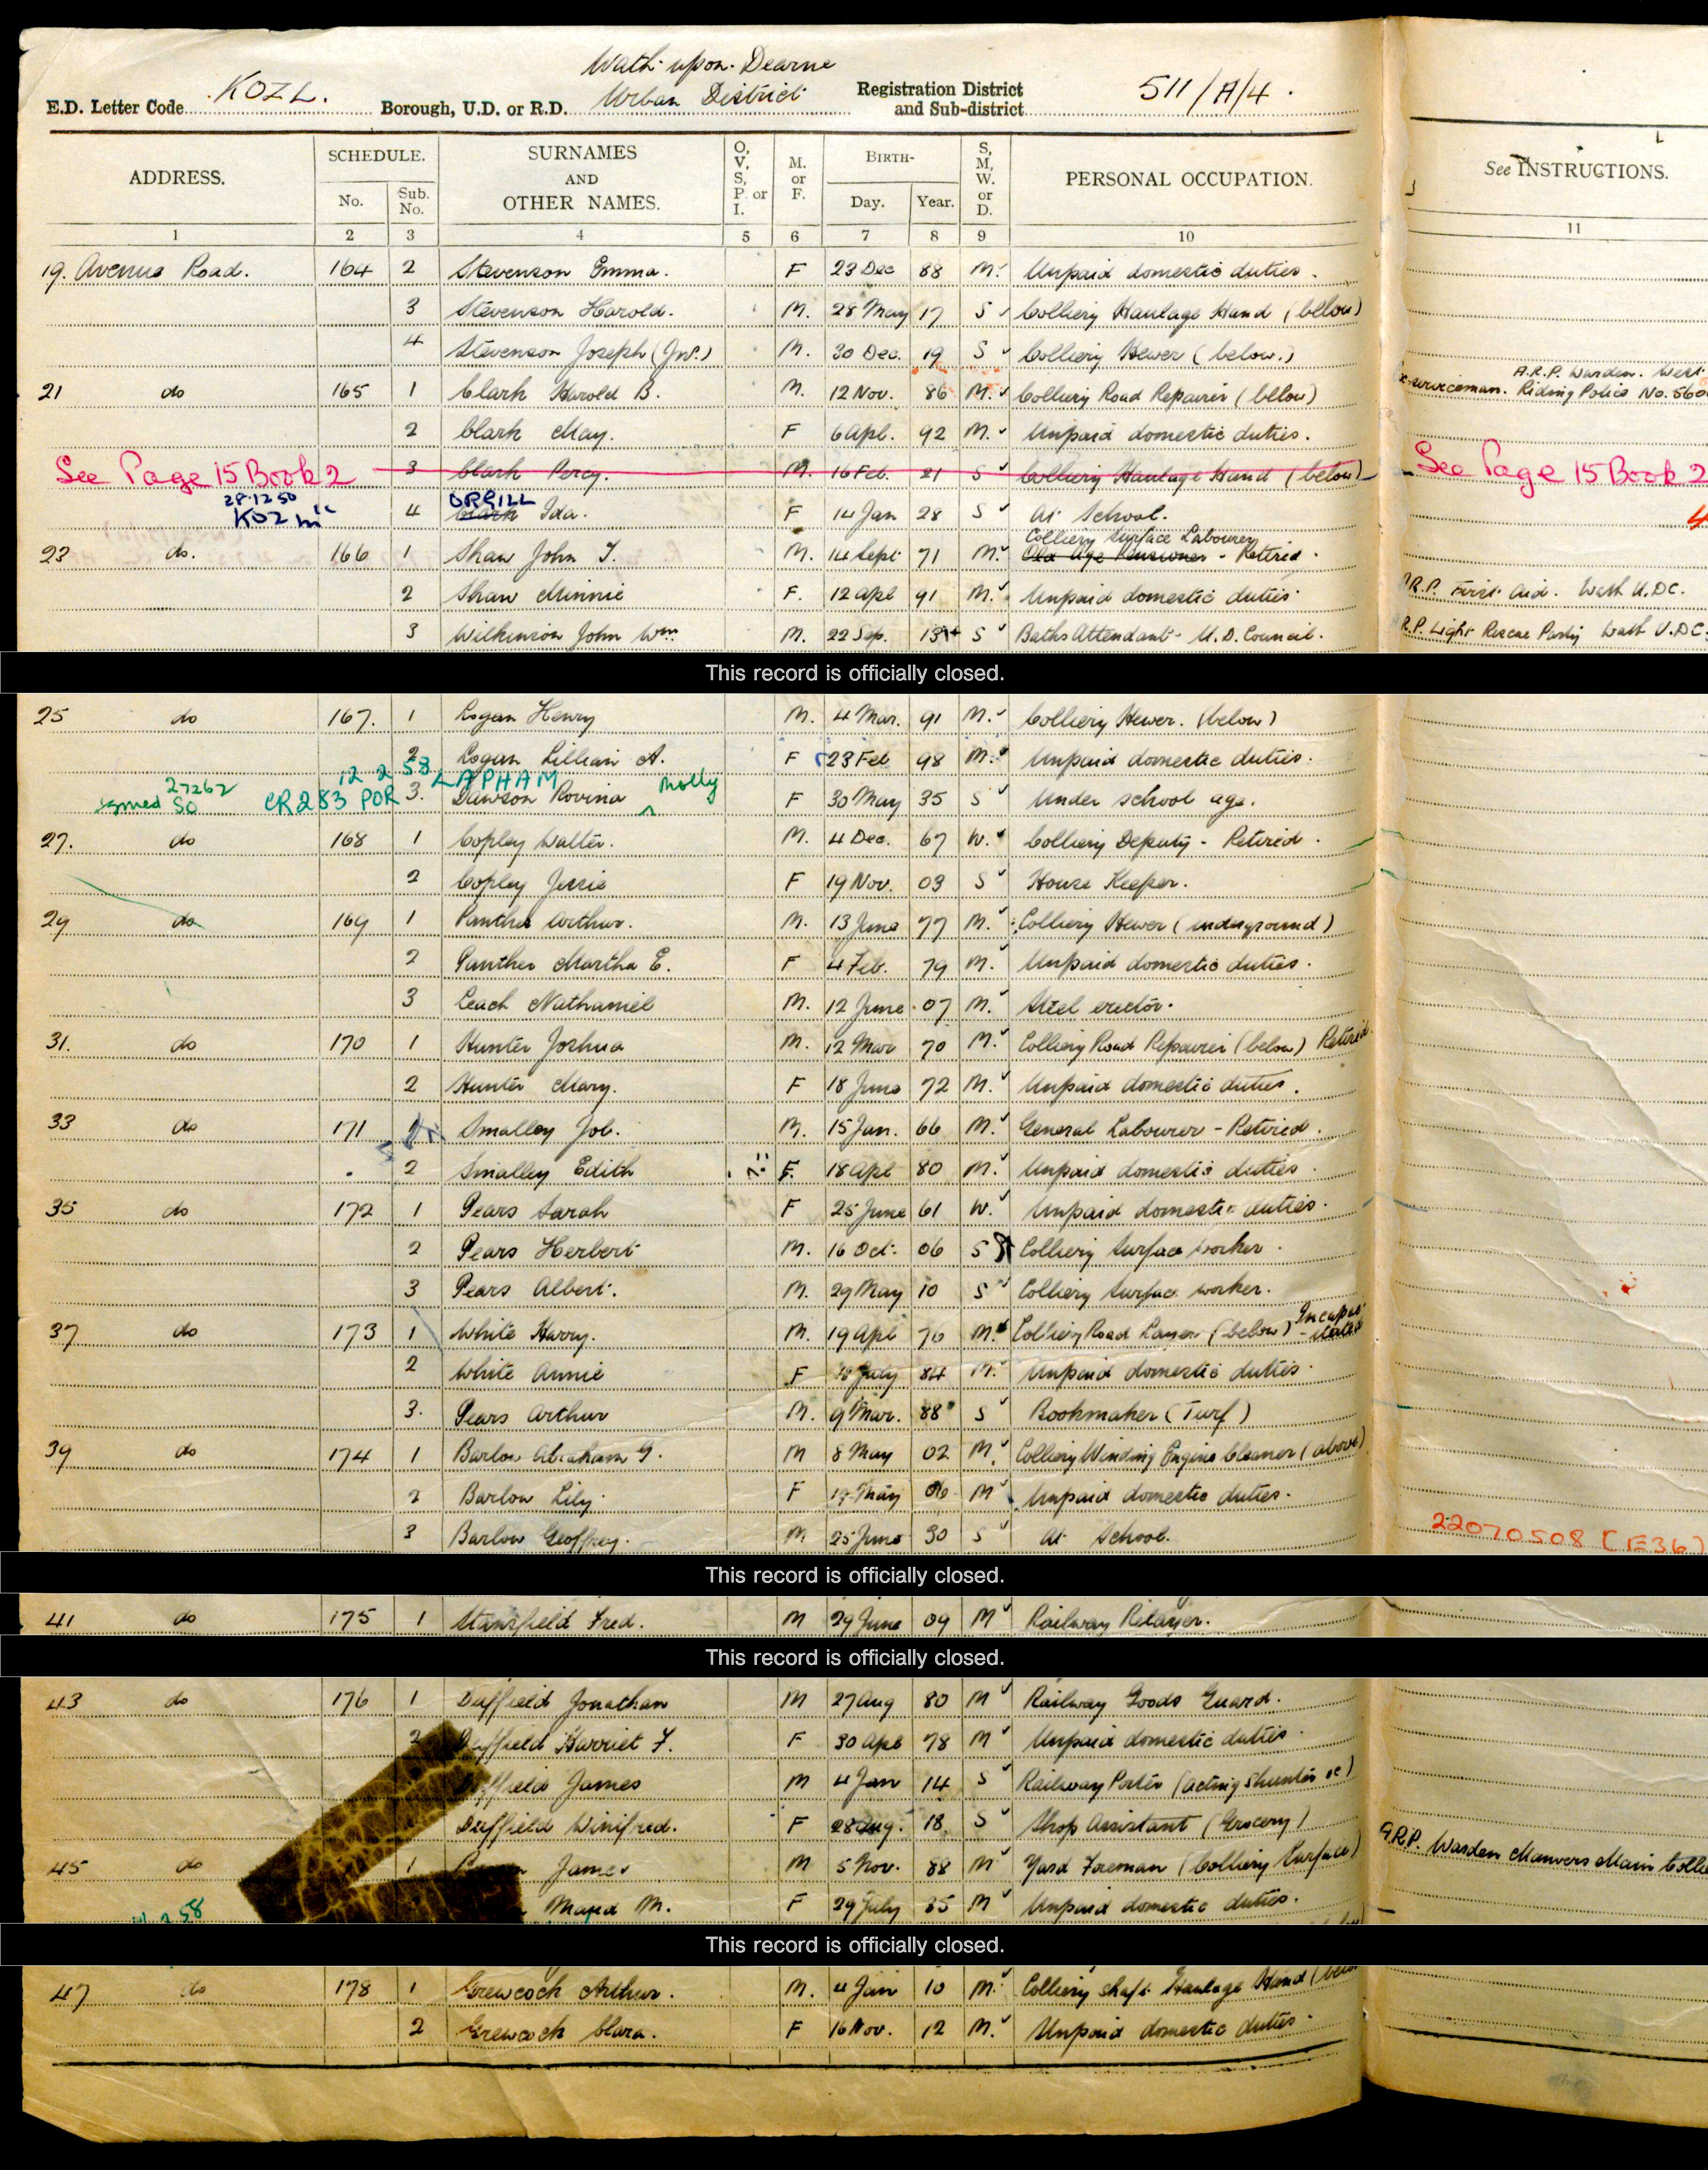 Wath upon Dearne
E.D. Letter Code KOZL. Borough, U.D. or R.D. Urban District Registration District and Sub-district 511/A/4.
ADDRESS. SCHEDULE. No. Sub. No. SURNAMES AND OTHER NAMES. O, V, S, P. or I. M. or F. BIRTH- Day. Year. S, M, W. or D. PERSONAL OCCUPATION. See INSTRUCTIONS.
1 2 3 4 5 6 7 8 9 10 11
19. Avenue Road. 164 2 Stevenson Emma. F 23 Dec 88 M. Unpaid domestic duties.
3 Stevenson Harold. M. 28 May 17 S Colliery Haulage Hand (below)
4 Stevenson Joseph (Jnr.) M. 30 Dec. 19 S Colliery Hewer (below.)
A.R.P. Warden. West
21 do 165 1 Clark Harold B. M. 12 Nov. 86 M. Colliery Road Repairer (below) Riding Police No. 560
2 Clark May. F 6 Apl. 92 M. Unpaid domestic duties.
See Page 15 Book 2 3 Clark Percy. M. 16 Feb. 21 S Colliery Haulage Hand (below) See Page 15 Book 2
28.12.50 ORGILL
KOZ 4 Clark Ida. F 14 Jan 28 S At School.
Colliery Surface Labourer
23 do. 166 1 Shaw John T. M. 14 Sept 71 M. Old Age Pensioner - Retired.
2 Shaw Minnie F. 12 Apl 91 M. Unpaid domestic duties R.P. First Aid. Wath U.D.C.
3 Wilkinson John Wm. M. 22 Sep. 13 S Baths Attendant - U.D. Council. R.P. Light Rescue Party Wath U.D.C.
This record is officially closed.
25 do 167. 1 Logan Henry M. 4 Mar. 91 M. Colliery Hewer. (below)
2 Logan Lillian A. F 23 Feb 98 M. Unpaid domestic duties.
27262 12 2 58 LAPHAM Molly
SO CR 283 POR 3. Dawson Rovina F 30 May 35 S Under school age.
27. do 168 1 Copley Walter. M. 4 Dec. 67 W. Colliery Deputy - Retired.
2 Copley Jessie F 19 Nov. 03 S House Keeper.
29 do 169 1 Panther Arthur. M. 13 June 77 M. Colliery Hewer (underground)
2 Panther Martha E. F 4 Feb. 79 M. Unpaid domestic duties.
3 Leach Nathaniel M. 12 June 07 M. Steel erector.
31. do 170 1 Hunter Joshua M. 12 Mar 70 M. Colliery Road Repairer (below) Retired
2 Hunter Mary. F 18 June 72 M. Unpaid domestic duties.
33 do 171 1 Smalley Job. M. 15 Jan. 66 M. General Labourer - Retired.
2 Smalley Edith F. 18 Apl 80 M. Unpaid domestic duties.
35 do 172 1 Pears Sarah F 25 June 61 W. Unpaid domestic duties.
2 Pears Herbert M. 16 Oct. 06 S Colliery Surface worker.
3 Pears Albert. M. 29 May 10 S Colliery Surface worker.
37 do 173 1 White Harry. M. 19 Apl 76 M. Colliery Road Layer (below) Incapacitated
2 White Annie F July 84 M. Unpaid domestic duties.
3. Pears Arthur M. 9 Mar. 88 S Bookmaker (Turf)
39 do 174 1 Barlow Abraham G. M 8 May 02 M. Colliery Winding Engine Cleaner (above)
2 Barlow Lily F May 06 M Unpaid domestic duties.
3 Barlow Geoffrey. M 25 June 30 S At School. 22070508 (E36)
This record is officially closed.
41 do 175 1 Stansfield Fred. M 29 June 09 M Railway Relayer.
This record is officially closed.
43 do 176 1 Duffield Jonathan M 27 Aug 80 M Railway Goods Guard.
2 Duffield Harriet F. F 30 Apl 78 M Unpaid domestic duties.
Duffield James M 4 Jan 14 S Railway Porter (acting Shunter &c)
Duffield Winifred. F 28 Aug. 18 S Shop Assistant (Grocery)
45 do 1 James M 5 Nov. 88 M Yard Foreman (Colliery Surface) A.R.P. Warden Manvers Main
Maud M. F 29 July 85 M Unpaid domestic duties.
This record is officially closed.
47 do 178 1 Grewcock Arthur. M. 4 Jan 10 M. Colliery Shaft Haulage Hand
2 Grewcock Clara. F 16 Nov. 12 M. Unpaid domestic duties.